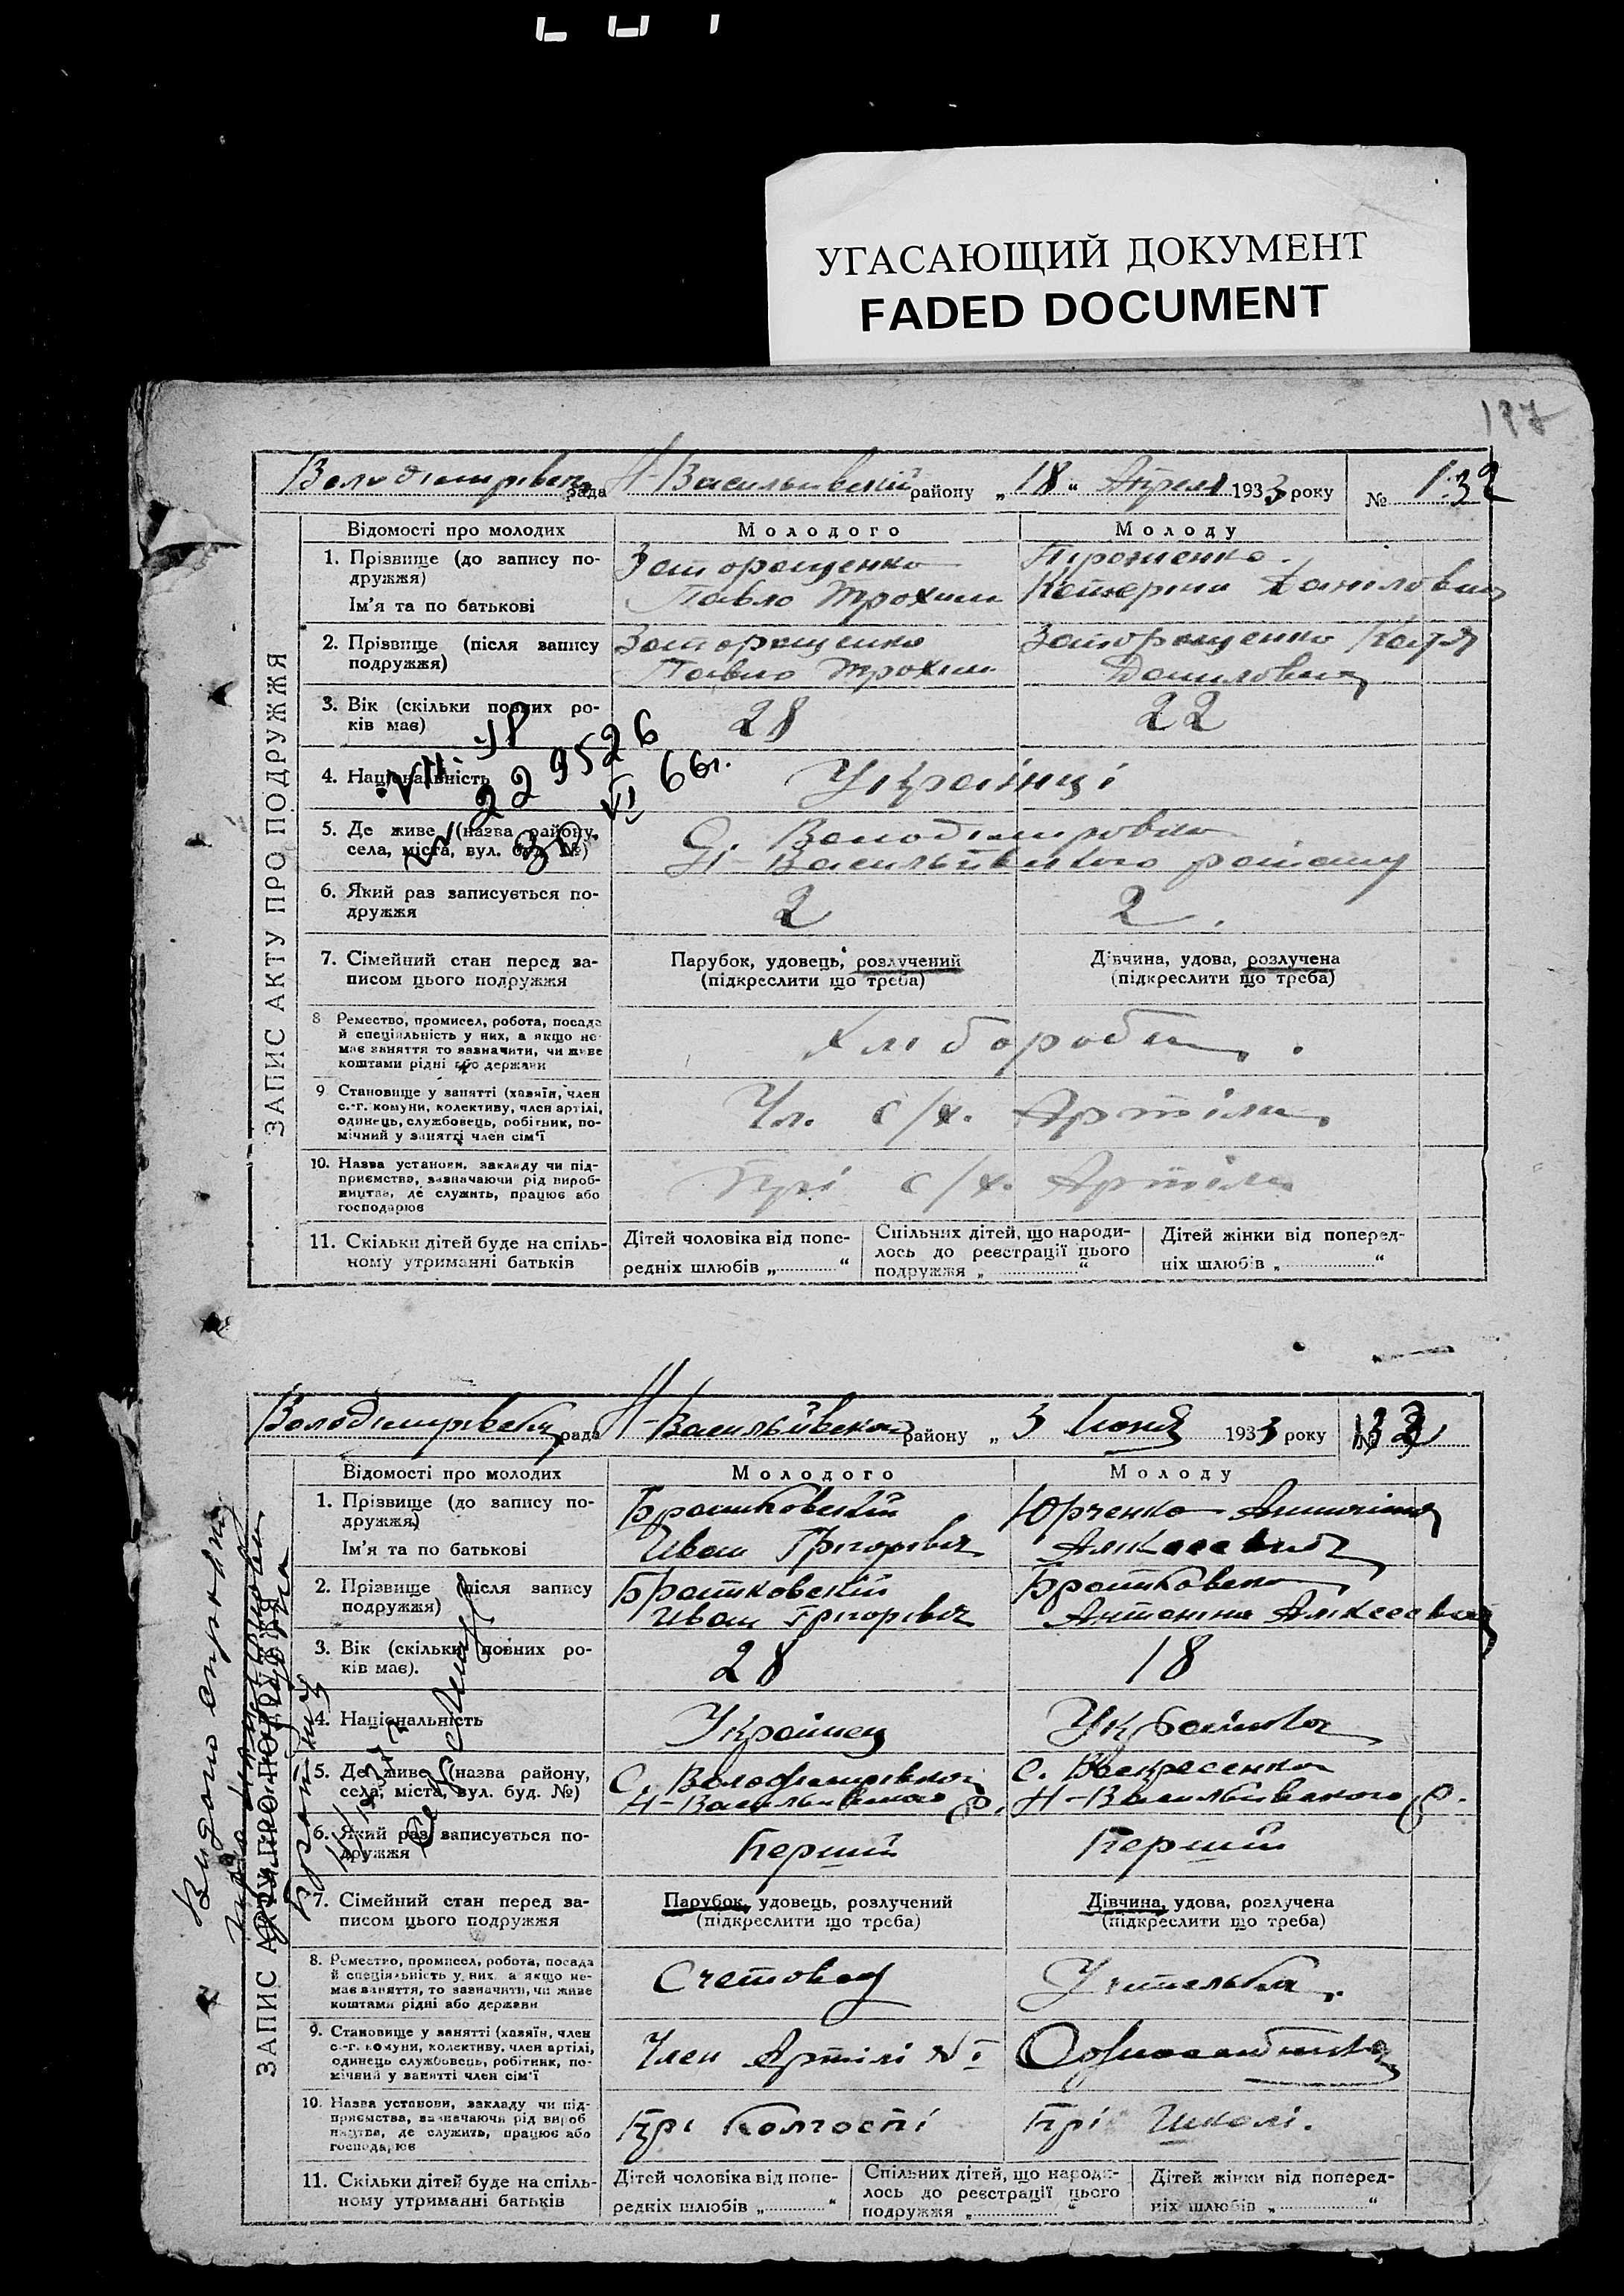 УГАСАЮЩИЙ ДОКУМЕНТ
FADED DOCUMENT
197
ЗАПИС АКТУ ПРО ПОДРУЖЖЯ
рада Н-Васильївский району „18“ Апреля 1933 року № 132
Відомості про молодих Молодого Молоду
1. Прізвище (до запису по-
дружжя)
Ім'я та по батькові
Заторощенко
Павло Трохим
Катерина Даниловна
2. Прізвище (після запису
подружжя)
Заторощенко
Павло Трохим
Заторощенко Катя
Даниловна
3. Вік (скільки повних ро-
ків має)
28 22
4. Національність
Українці
229526
30 VI 66г.
5. Де живе (назва району,
села, міста, вул. буд. №)
С. Володимировка
Н-Васильївского району
6. Який раз записується по-
дружжя
2 2.
7. Сімейний стан перед за-
писом цього подружжя
Парубок, удовець, розлучений
(підкреслити що треба)
Дівчина, удова, розлучена
(підкреслити що треба)
8 Ремество, промисел, робота, посада
й спеціяльність у них, а якщо не
має заняття то зазначити, чи живе
коштами рідні або держави
Хлібороби.
9 Становище у занятті (хазяїн, член
с.-г. комуни, колективу, член артілі,
одинець, службовець, робітник, по-
мічний у занятті член сім'ї
Чл. с/х. Артіли
10. Назва установи, закладу чи під-
приємства, зазначаючи рід вироб-
ництва, де служить, працює або
господарює
Прі с/х. Артіли
11. Скільки дітей буде на спіль-
ному утриманні батьків
Дітей чоловіка від попе-
редніх шлюбів „ “
Спільних дітей, що народи-
лось до реєстрації цього
подружжя „ “
Дітей жінки від поперед-
ніх шлюбів „ “
ЗАПИС АКТУ ПРО ПОДРУЖЖЯ
рада Н-Васильївской району „ 3 Июня 1933 року № 133
Відомості про молодих Молодого Молоду
1. Прізвище (до запису по-
дружжя)
Ім'я та по батькові
Братковский
Иван Григорівич
Юрченко Антоніна
Аліксеевна
2. Прізвище (після запису
подружжя)
Братковский
Иван Григорівич
Братковска
Антоніна Аліксеевна
3. Вік (скільки повних ро-
ків має).
28 18
4. Національність
Украинец Украінка
5. Де живе (назва району,
села, міста, вул. буд. №)
С. Володимирівка
Н-Васильївского р.
С. Воскресенка
Н-Васильївского р.
6. Який раз записується по-
дружжя
Перший Перший
7. Сімейний стан перед за-
писом цього подружжя
Парубок, удовець, розлучений
(підкреслити що треба)
Дівчина, удова, розлучена
(підкреслити що треба)
8. Ремество, промисел, робота, посада
й спеціяльність у них, а якщо не-
має заняття, то зазначити, чи живе
коштами рідні або держави
Счетовод Учителька.
9. Становище у занятті (хазяїн, член
с.-г. комуни, колективу, член артілі,
одинець службовець, робітник, по-
мічний у занятті член сім'ї
Член Артілі № 1
10. Назва установи, закладу чи під-
приємства, зазначаючи рід вироб
ництва, де служить, працює або
господарює
Прі Колгоспі Прі Школі.
11. Скільки дітей буде на спіль-
ному утриманні батьків
Дітей чоловіка від попе-
редніх шлюбів „ “
Спільних дітей, що народи-
лось до реєстрації цього
подружжя „ “
Дітей жінки від поперед-
ніх шлюбів „ “